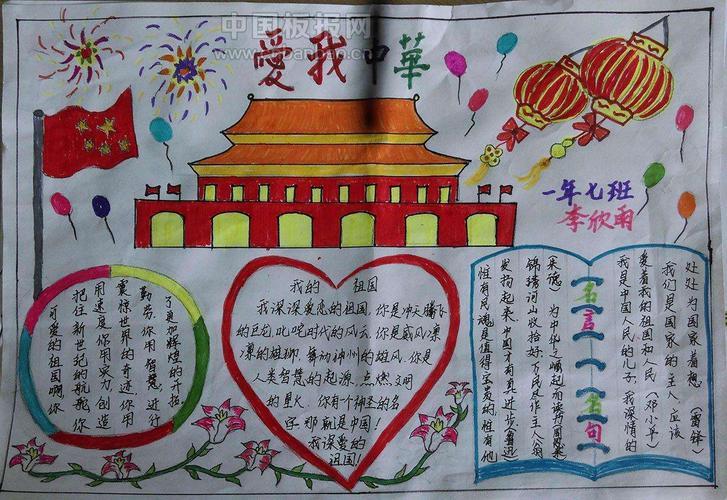 中国板报网
愛我中華
一年七班
李欣雨
可爱的祖国啊,你
把住新世纪的航舵,你
用速度,你用实力创造
震惊世界的奇迹,你用
勤劳,你用智慧,进行
了更加辉煌的开拓
我的 祖国
我深深爱恋的祖国,你是冲天腾飞
的巨龙,叱咤时代的风云,你是威风凛
凛的雄狮,舞动神州的雄风,你是
人类智慧的起源,点燃文明
的星火,你有一个神圣的名
字,那就是中国!
我深爱的
祖国!
惟有民魂是值得宝贵的,惟有他
发扬起来,中国才有真进步(鲁迅)
锦绣河山收拾好,万民尽作主人翁
(朱德) 为中华之崛起而读书(周恩来)
名言名句
我是中国人民的儿子,我深情的
爱着我的祖国和人民(邓小平)
我们是国家的主人,应该
处处为国家着想 (雷锋)